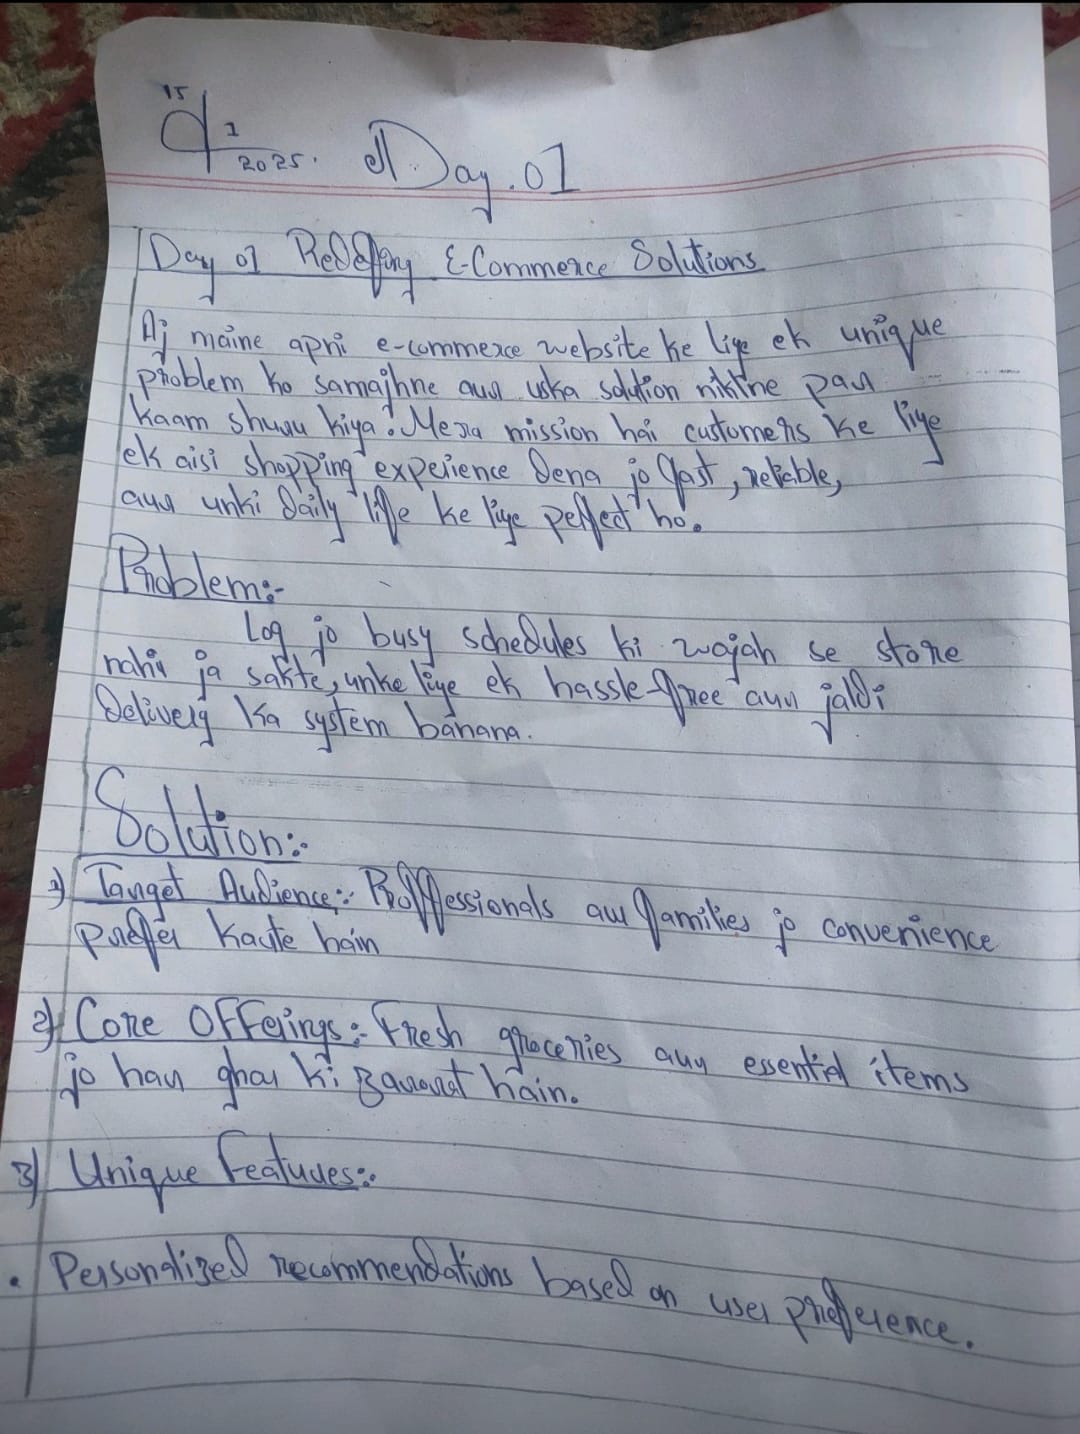 15
1
2025.
Day.01
Day 01 E-Commerce Solutions
Aj maine apni e-commerce website ke liye ek unique
problem ko samajhne aur uska solution nikline par
kaam shuru kiya. Mera mission hai customers ke liye
ek aisi shopping experience dena jo fast, reliable,
aur unki daily life ke liye perfect ho.
Problem:-
Log jo busy schedules ki wajah se store
nahi ja sakte, unke liye ek hassle-free aur jaldi
Delivery ka system banana.
Solution:-
1) Target Audience:- Proffessionals aur families jo convenience
prefer karte hain
2) Core Offerings:- Fresh groceries aur essential items
jo har ghar ki hain.
3) Unique Features:-
• Personalized recommendations based on user preference.